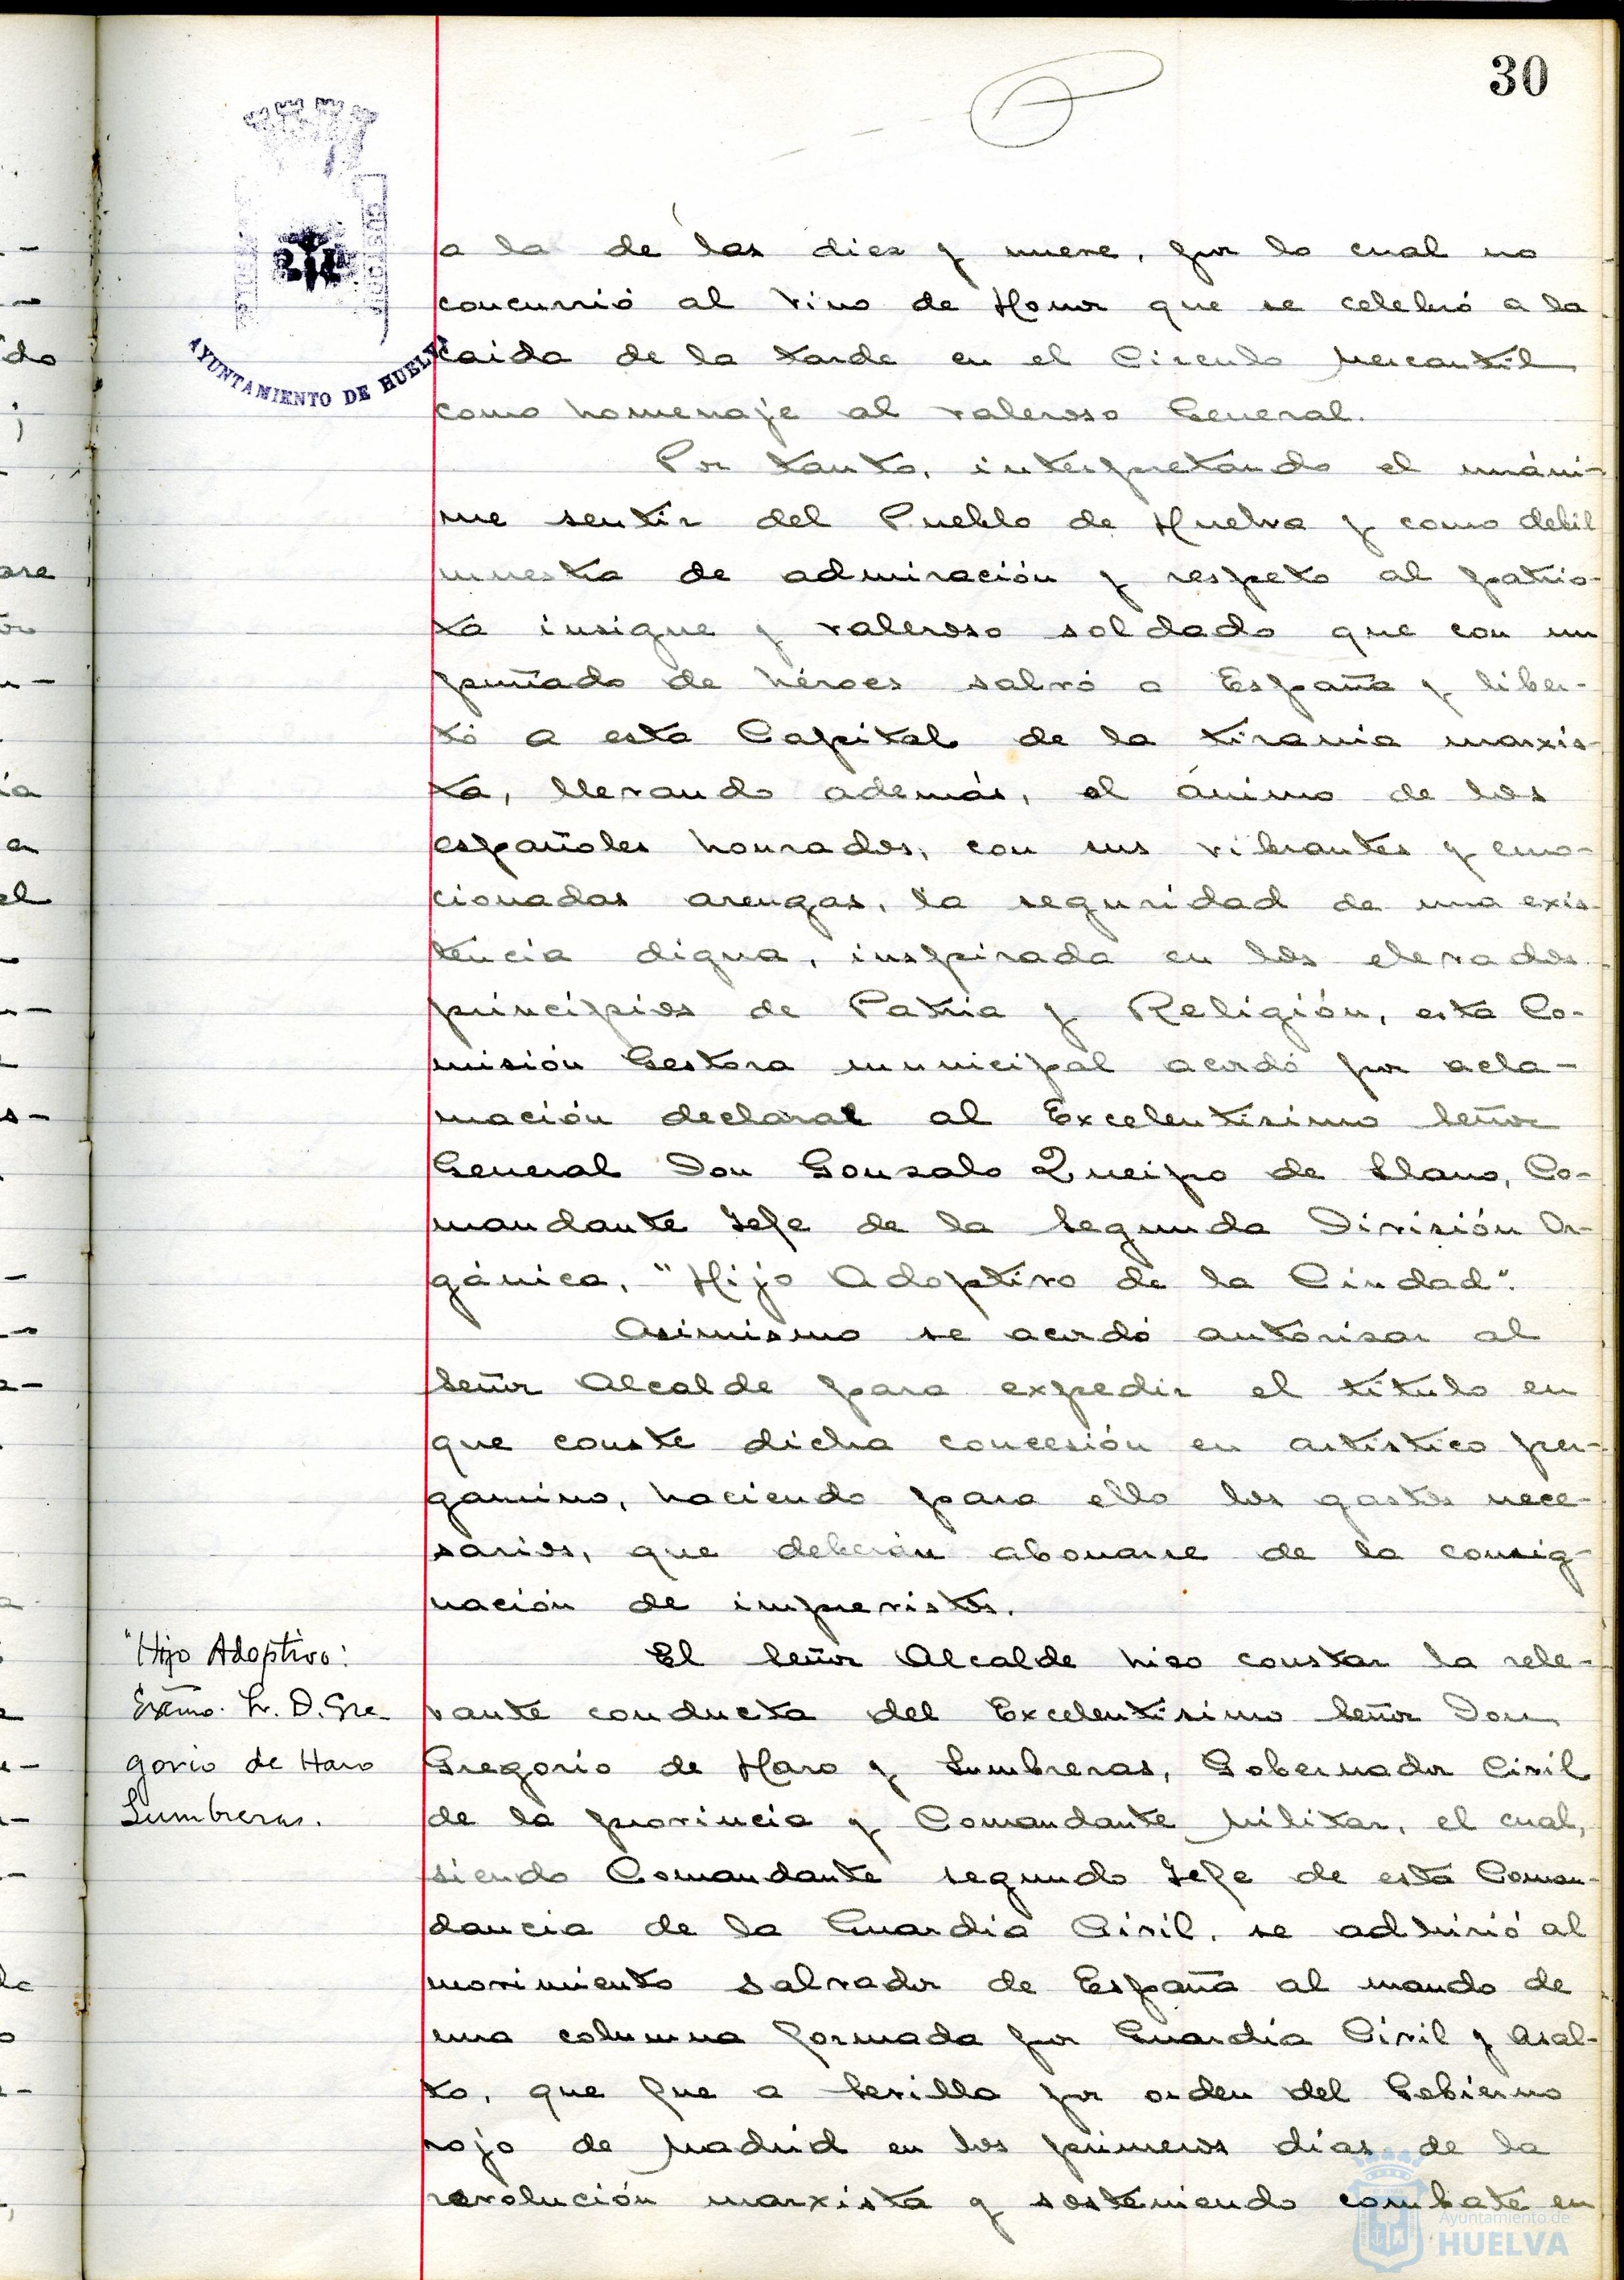 30
AYUNTAMIENTO DE HUELVA
a la de las diez y nueve, por lo cual no
concurrió al Vino de Honor que se celebró a la
caida de la tarde en el Círculo Mercantil
como homenaje al valeroso General.
Por tanto, interpretando el unáni-
me sentir del Pueblo de Huelva y como debil
muestra de admiración y respeto al patrio-
ta insigne y valeroso soldado que con un
puñado de héroes salvó a España y liber-
tó a esta Capital de la tirania marxis-
ta, llevando además, al ánimo de los
españoles honrados, con sus vibrantes y emo-
cionadas arengas, la seguridad de una exis-
tencia digna, inspirada en los elevados
principios de Patria y Religión, esta Co-
misión Gestora municipal acordó por acla-
mación declarar al Excelentísimo Señor
General Don Gonzalo Queipo de Llano, Co-
mandante Jefe de la Segunda División Or-
gánica, "Hijo Adoptivo de la Ciudad".
Asimismo se acordó autorizar al
Señor Alcalde para expedir el título en
que conste dicha concesión en artístico per-
gamino, haciendo para ello los gastos nece-
sarios, que deberán abonarse de la consig-
nación de imprevistos.
"Hijo Adoptivo:
Excmo. Sr. D. Gre-
gorio de Haro
Lumbreras.
El Señor Alcalde hizo constar la rele-
vante conducta del Excelentísimo Señor Don
Gregorio de Haro y Lumbreras, Gobernador Civil
de la provincia y Comandante Militar, el cual,
siendo Comandante segundo Jefe de esta Coman-
dancia de la Guardia Civil, se adhirió al
movimiento salvador de España al mando de
una columna formada por Guardia Civil y Asal-
to, que fue a Sevilla por orden del Gobierno
rojo de Madrid en los primeros días de la
revolución marxista y sosteniendo combate en
Ayuntamiento de
HUELVA